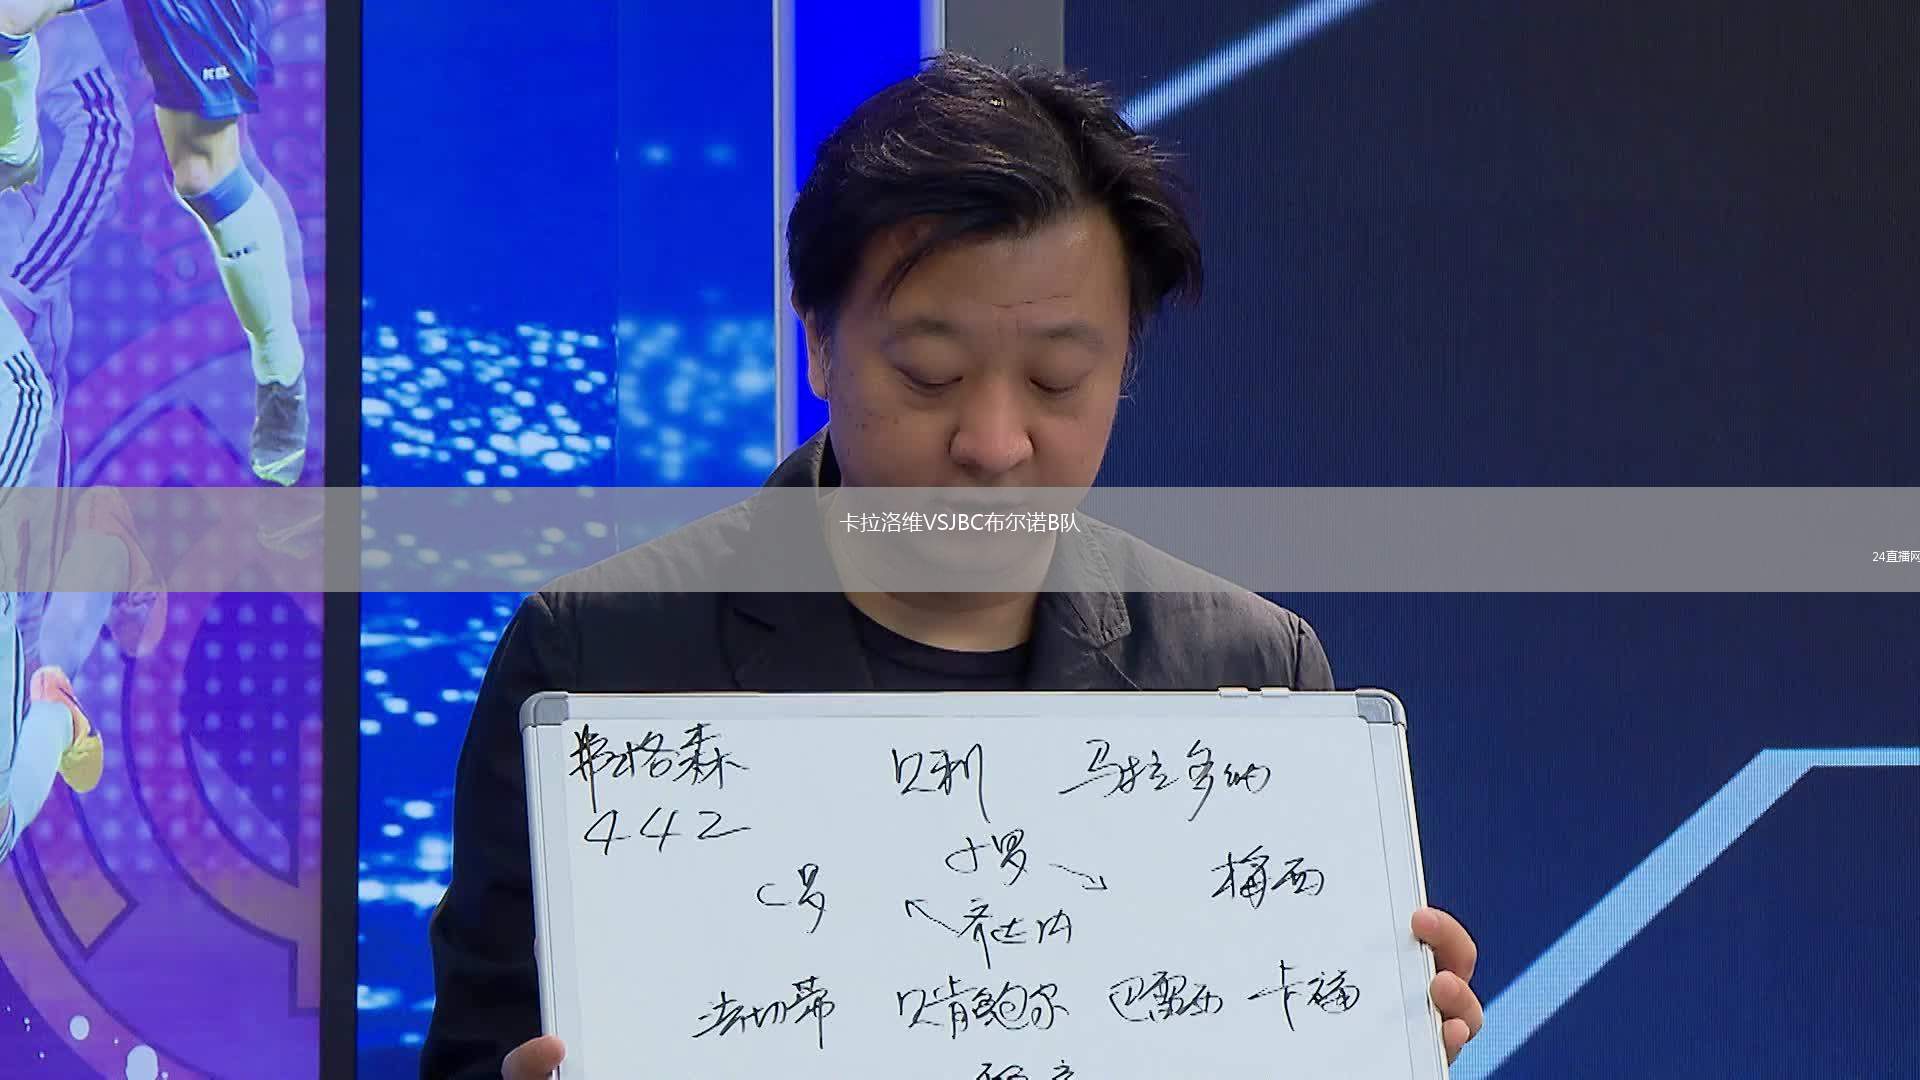 卡拉洛维VSJBC布尔诺B队
24直播网
弗格森 贝利 马拉多纳
442
小罗
C罗 梅西
齐达内
法切蒂 贝肯鲍尔 巴雷西 卡福